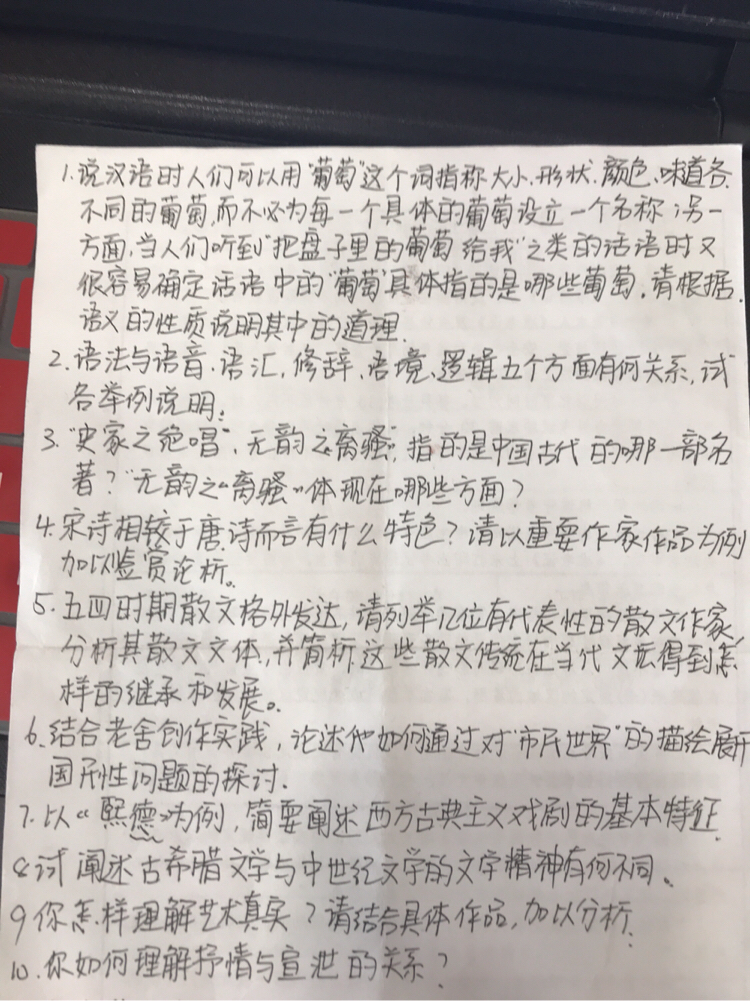 1.说汉语时人们可以用"葡萄"这个词指称大小、形状、颜色、味道各
不同的葡萄,而不必为每一个具体的葡萄设立一个名称;另一
方面,当人们听到"把盘子里的葡萄给我"之类的话语时又
很容易确定话语中的"葡萄"具体指的是哪些葡萄。请根据
语义的性质说明其中的道理.
2.语法与语音、语汇、修辞、语境、逻辑五个方面有何关系,试
各举例说明.
3."史家之绝唱",无韵之离骚",指的是中国古代的哪一部名
著?"无韵之"离骚"体现在哪些方面?
4.宋诗相较于唐诗而言有什么特色?请以重要作家作品为例
加以鉴赏论析。
5.五四时期散文格外发达,请列举几位有代表性的散文作家,
分析其散文文体,并简析这些散文传统在当代文坛得到怎
样的继承和发展。
6.结合老舍创作实践,论述他如何通过对"市民世界"的描绘展开
国民性问题的探讨.
7.以《熙德》为例,简要阐述西方古典主义戏剧的基本特征.
8.试阐述古希腊文学与中世纪文学的文学精神有何不同。
9.你怎样理解艺术真实?请结合具体作品,加以分析.
10.你如何理解抒情与宣泄的关系?